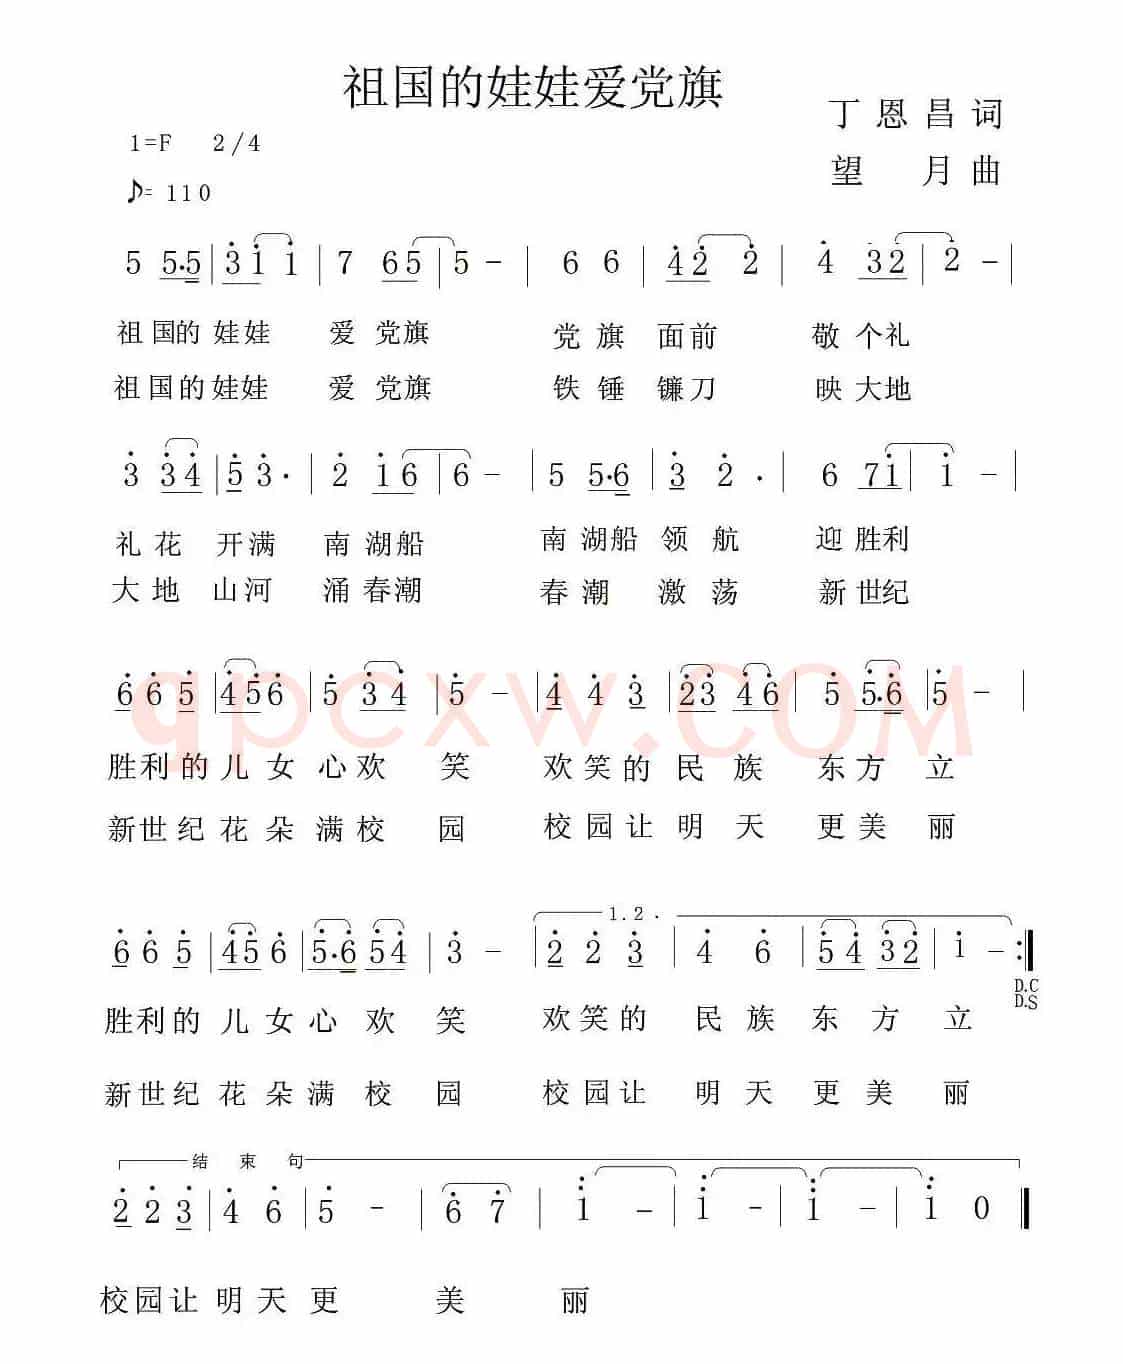 祖国的娃娃爱党旗
丁恩昌词
1=F 2/4
望 月曲
♪= 110
5 5·5 | 3 1 1 | 7 6 5 | 5 - | 6 6 | 4 2 2 | 4 3 2 | 2 - |
祖国的娃娃 爱党旗 党旗面前 敬个礼
祖国的娃娃 爱党旗 铁锤镰刀 映大地
3 3 4 | 5 3· | 2 1 6 | 6 - | 5 5·6 | 3 2· | 6 7 1 | 1 - |
礼花 开满 南湖船 南湖船领航 迎胜利
大地 山河 涌春潮 春潮激荡 新世纪
6 6 5 | 4 5 6 | 5 3 4 | 5 - | 4 4 3 | 2 3 4 6 | 5 5·6 | 5 - |
qpcxw.COM
胜利的儿女心欢 笑 欢笑的民族 东方立
新世纪花朵满校 园 校园让明天 更美丽
6 6 5 | 4 5 6 | 5·6 5 4 | 3 - | 2 2 3 | 4 6 | 5 4 3 2 | 1 - :|
1.2.
D.C
D.S
胜利的儿女心欢 笑 欢笑的 民族东方 立
新世纪花朵满校 园 校园让 明天更美 丽
结束句
2 2 3 | 4 6 | 5 - | 6 7 | 1 - | 1 - | 1 - | 1 0 |
校园让明天更 美 丽